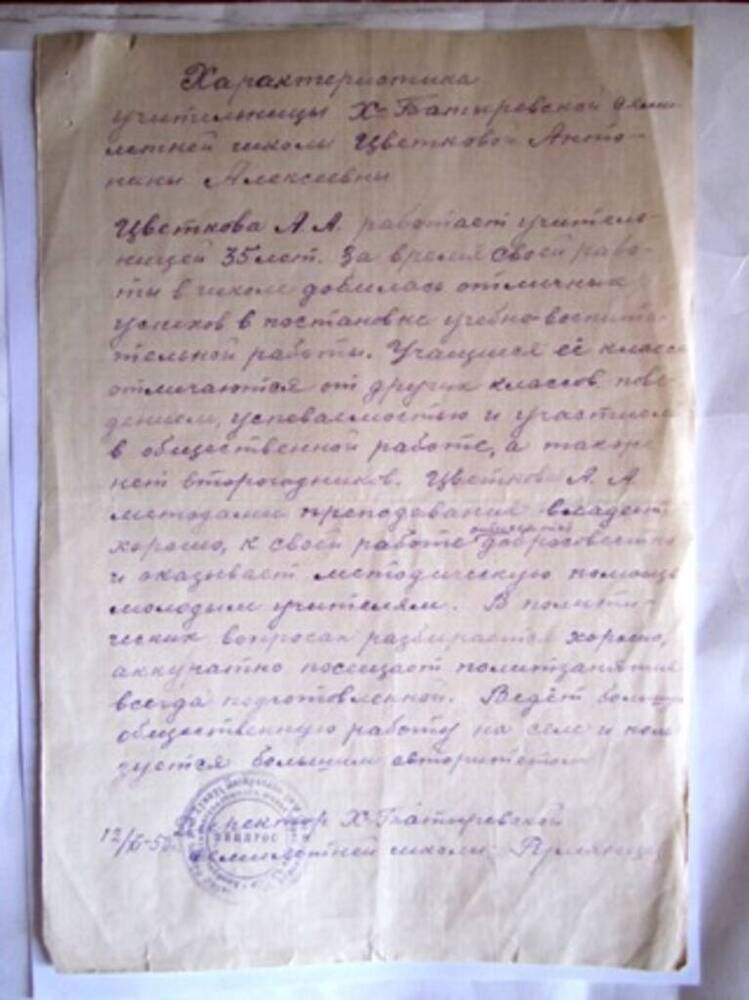 Характеристика
учительницы Х-Батыревской семи-
летней школы Цветковой Анто-
нины Алексеевны
Цветкова А.А. работает учитель-
ницей 35 лет. За время своей рабо-
ты в школе добилась отличных
успехов в постановке учебно-воспита-
тельной работы. Учащиеся её класса
отличаются от других классов пове-
дением, успеваемостью и участием
в общественной работе, а также
нет второгодников. Цветкова А. А
методами преподавания владеет
хорошо, к своей работе добросовестно
и оказывает методическую помощь
молодым учителям. В полити-
ческих вопросах разбирается хорошо,
аккуратно посещает политзанятия
всегда подготовленной. Ведёт большую
общественную работу на селе и поль
зуется большим авторитетом
Директор Х-Батыревской
12/XI-5
семилетней школы: